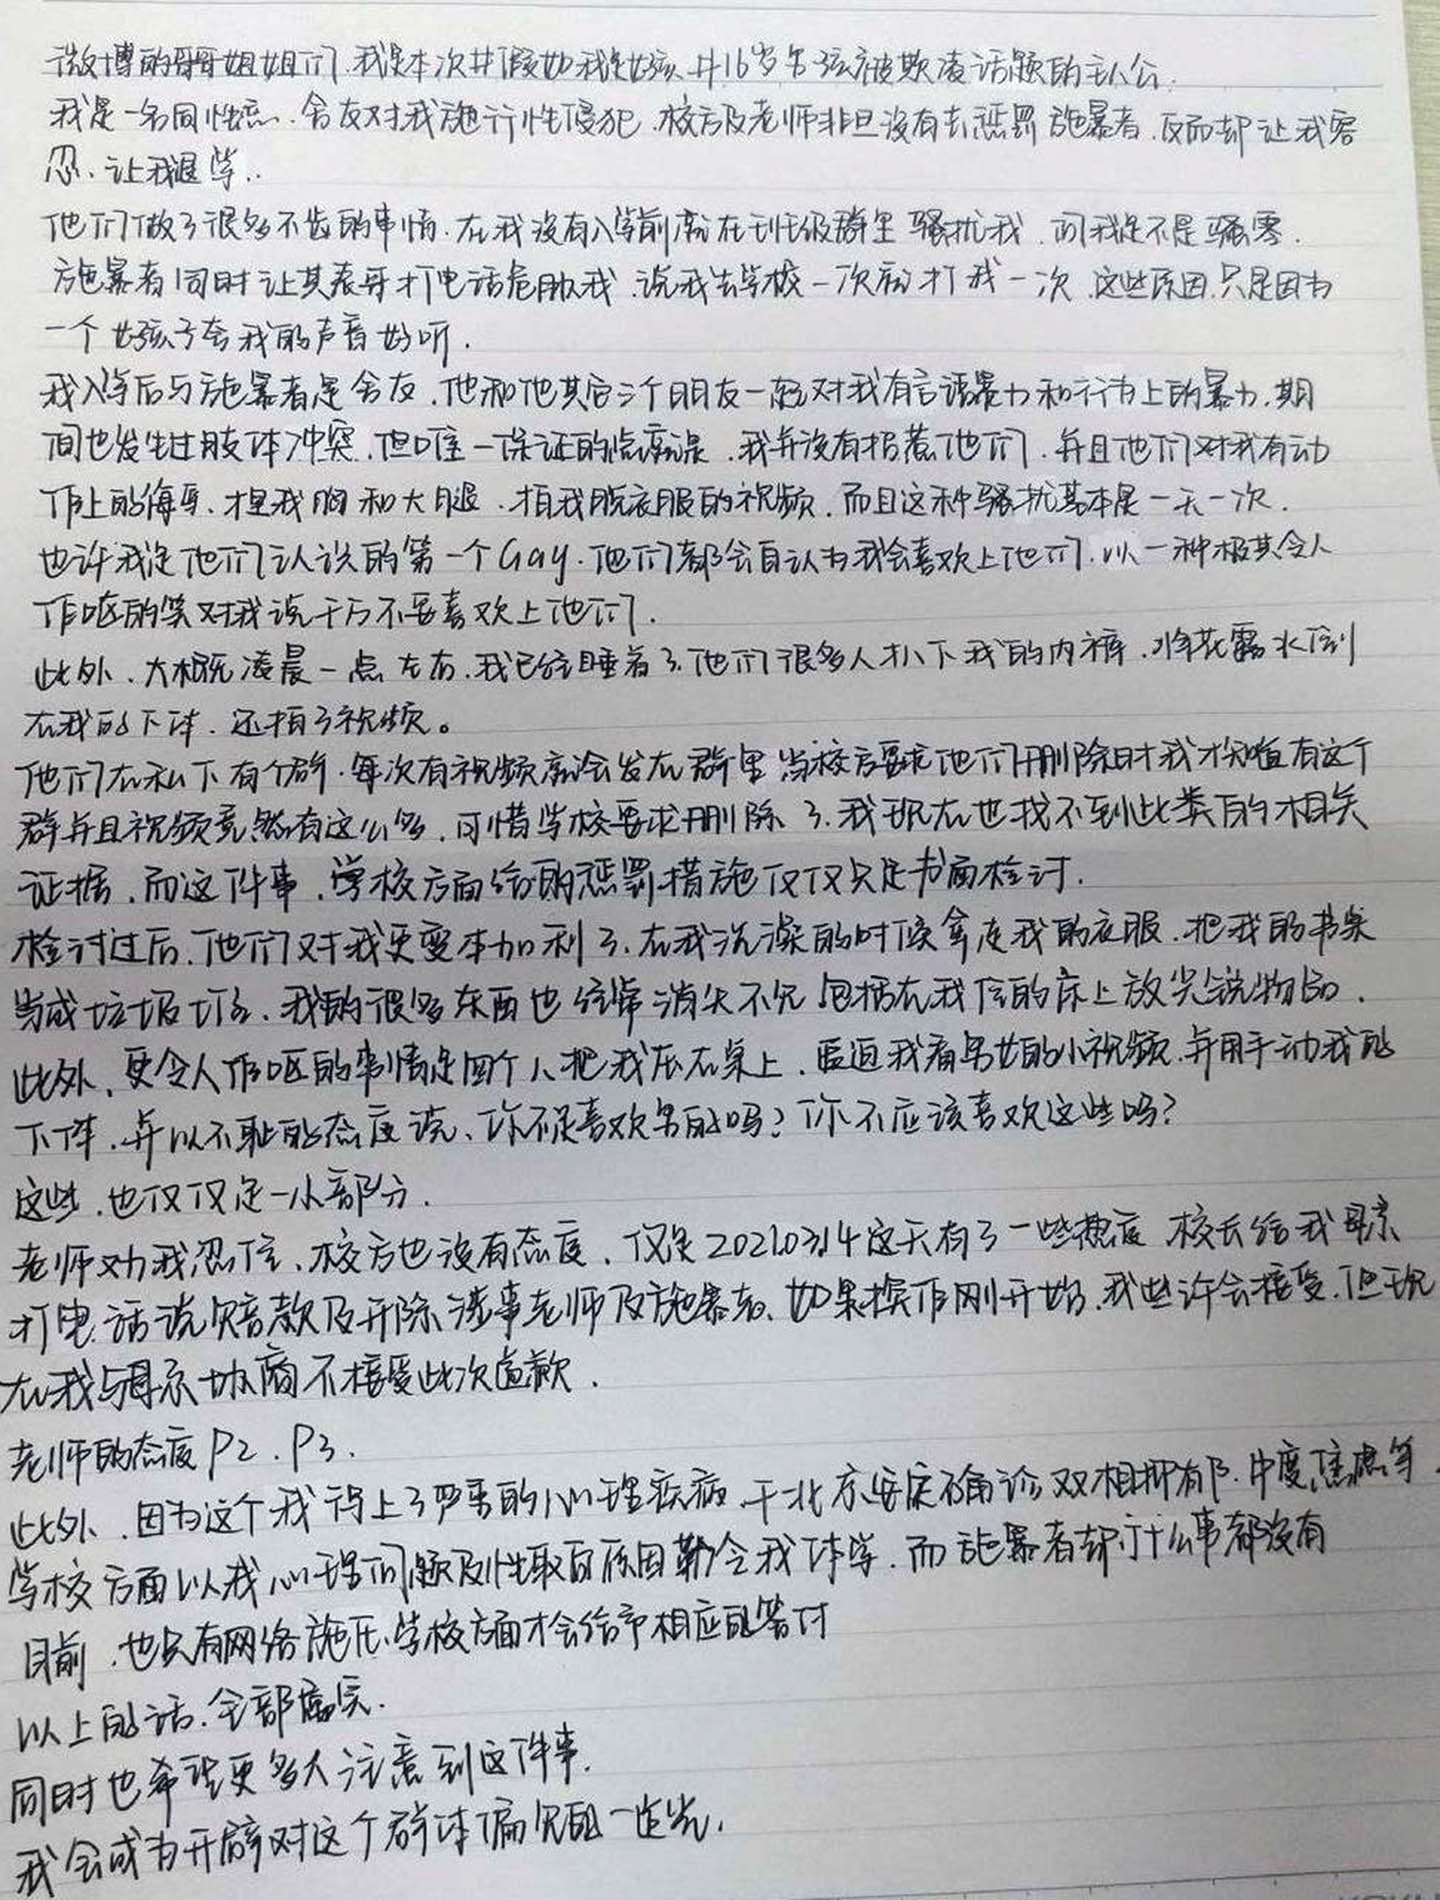 微博的哥哥姐姐们,我是本次#假如我是女孩#16岁男孩被欺凌话题的主人公.
我是一名同性恋.舍友对我施行性侵犯.校方及老师非但没有去惩罚施暴者.反而却让我容
忍.让我退学..
他们做了很多不齿的事情.在我没有入学前就在班级群里骚扰我.问我是不是骚零.
施暴者同时让其表哥打电话危胁我.说我去学校一次就打我一次.这些原因.只是因为
一个女孩子夸我的声音好听.
我入学后与施暴者是舍友.他和他其它三个朋友一起对我有言语暴力和行为上的暴力.期
间也发生过肢体冲突.但唯一保证的点就是.我并没有招惹他们.并且他们对我有动
作上的侮辱.摸我胸和大腿.拍我脱衣服的视频.而且这种骚扰基本是一天一次.
也许我是他们认识的第一个Gay.他们都会自认为我会喜欢上他们.以一种极其令人
作呕的笑对我说千万不要喜欢上他们.
此外.大概凌晨一点左右.我已经睡着了.他们很多人扒下我的内裤.将花露水倒
在我的下体.还拍了视频。
他们在私下有个群.每次有视频就会发在群里 当校方要求他们删除时我才知道有这个
群并且视频竟然有这么多.可惜学校要求删除了.我现在也找不到此类的相关
证据.而这件事.学校方面给的惩罚措施仅仅只是书面检讨.
检讨过后.他们对我更变本加利了.在我洗澡的时候拿走我的衣服.把我的书桌
当成垃圾场.我的很多东西也经常消失不见 包括在我住的床上放尖锐物品.
此外.更令人作呕的事情是四个人把我压在桌上.逼迫我看男女的小视频.并用手动我的
下体.并以不耻的态度说.你不是喜欢男的吗?你不应该喜欢这些吗?
这些.也仅仅是一小部分.
老师劝我忍住.校方也没有态度.仅是2021.03.14这天有了一些热度 校长给我母亲
打电话说赔款及开除涉事老师及施暴者.如果换作刚开始.我也许会接受.但现
在我与母亲协商不接受此次道歉.
老师的态度P2.P3.
此外.因为这个我得上了严重的心理疾病.于北京安定确诊双相抑郁.中度焦虑等.
学校方面以我心理问题及性取向原因勒令我休学.而施暴者却什么事都没有
目前.也只有网络施压.学校方面才会给予相应的答付
以上的话.全部属实.
同时也希望更多人注意到这件事.
我会成为开辟对这个群体偏见的一道光.